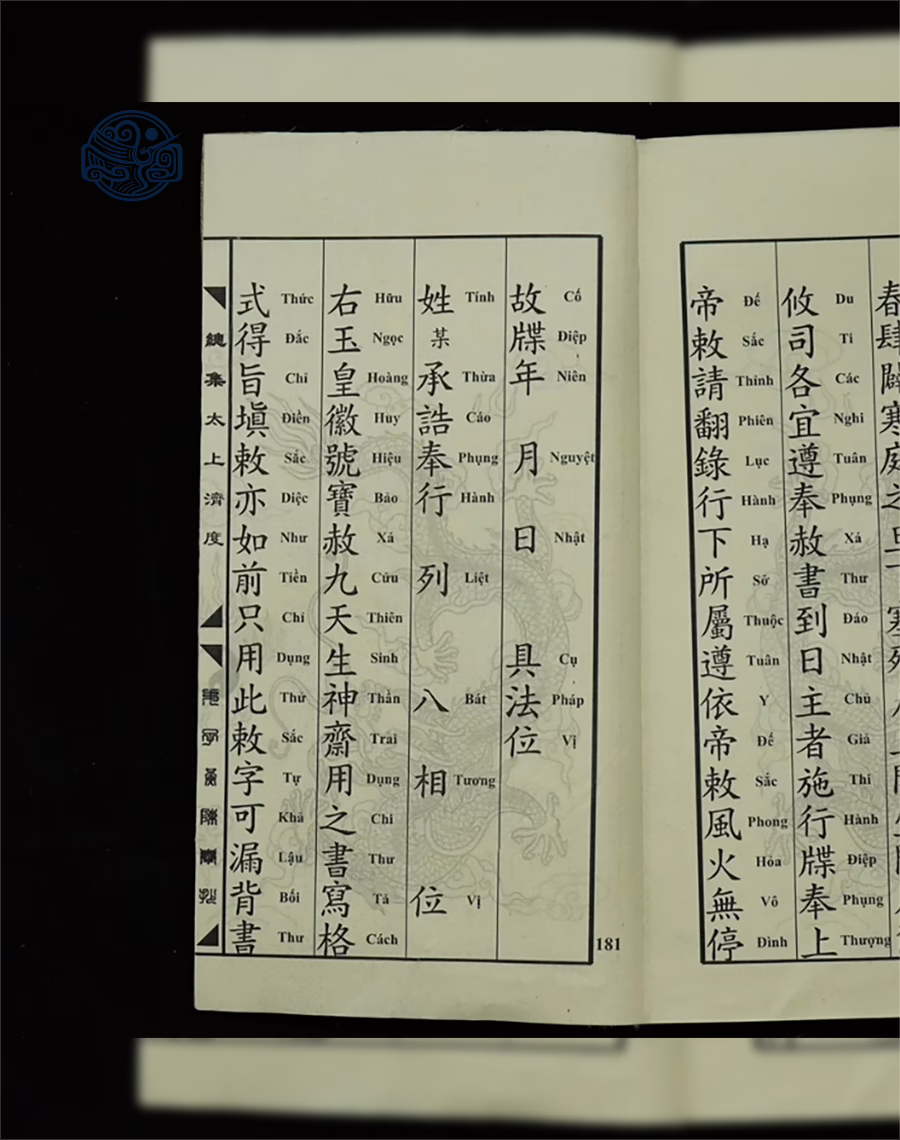 春肆
攸司各宜遵奉赦書到日主者施行牒奉上
Du Ti Các Nghi Tuân Phụng Xá Thư Đáo Nhật Chủ Giả Thi Hành Điệp Phụng Thượng
帝敕請翻錄行下所屬遵依帝敕風火無停
Đế Sắc Thỉnh Phiên Lục Hành Hạ Sở Thuộc Tuân Y Đế Sắc Phong Hỏa Vô Đình
故牒年 月 日 具法位
Cố Điệp Niên Nguyệt Nhật Cụ Pháp Vị
姓某承誥奉行 列 八 相 位
Tính Thừa Cáo Phụng Hành Liệt Bát Tương Vị
右玉皇徽號寶赦九天生神齋用之書寫格
Hữu Ngọc Hoàng Huy Hiệu Bảo Xá Cửu Thiên Sinh Thần Trai Dụng Chi Thư Tả Cách
式得旨塡敕亦如前只用此敕字可漏背書
Thức Đắc Chỉ Điền Sắc Diệc Như Tiền Chỉ Dụng Thử Sắc Tự Khả Lậu Bối Thư
總集太上濟度
181